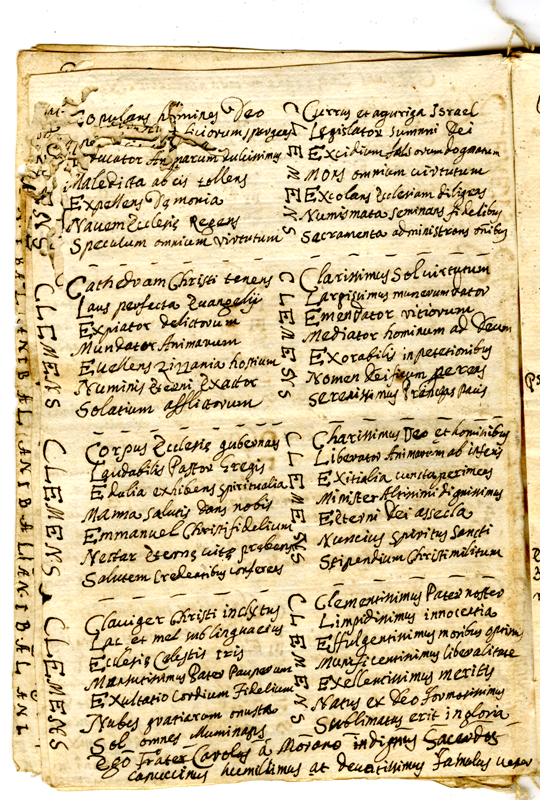 Copulans homines Deo
Educator Animarum dulcissimus
Maledicta ab eis tollens
Expellens Dęmonia
Nauem Ecclesię Regens
Speculum omnium virtutum
CLEMENS
Currus et aguriga Israel
Legislator summi Dei
Excidium falsorum dogmatum
Mors omnium uirtutum
Excolans Ecclesiam diligens
Numismata seminans fidelibus
Sacramenta administrans omnibus
CLEMENS
Cathedram Christi tenens
Laus perfecta Euangelij
Expiator delictorum
Mundator Animarum
Euellens Zizzania hostium
Numinis Eterni Exactor
Solatium afflictorum
CLEMENS
Clarissimus Sol virtutum
Largissimus munerum dator
Emendator vitiorum
Mediator hominum ad Deum
Exorabilis in petetionibus
Nomen Dei
Serenissimus Princeps Pacis
CLEMENS
Corpus Ecclesię gubernans
Laudabilis Pastor Gregis
Edulia exhibens spiritualia
Manna salutis dans nobis
Emmanuel Christi fidelium
Nectar Eternę uitę prebens
Salutem Credentibus conferens
CLEMENS
Charissimus Deo et hominibus
Liberator Animarum ab inferis
Exitialia cuncta perimens
Minister Altissimi dignissimus
Eterni Dei assecla
Nuncius Spiritus Sancti
Stipendium Christi militum
CLEMENS
Clauiger Christi inclytus
Lac et mel sub lingua eius
Ecclesię Celestis Iris
Mansuetissimus Pater Pauperum
Exultatio Cordium Fidelium
Nubes gratiarum onusta
Sol omnes illuminans
CLEMENS
Clementissimus Pater noster
Limpidissimus innocentia
Effulgentissimus moribus optimis
Munificentissimus liberalitate
Excellentissimus meritis
Natus ex Deo formosissimus
Sublimatus erit in gloria
Ego frater Carolus à Morano indignus Sacerdos
capuccinus humillimus at deuotissimus famulus